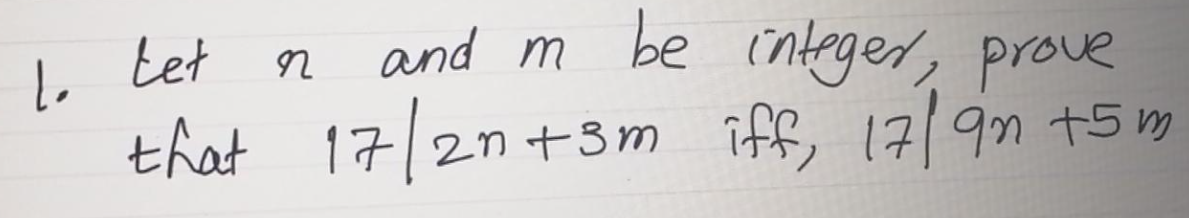 1. Let n and m be integer, prove
that 17/2n+3m iff, 17/9n+5m